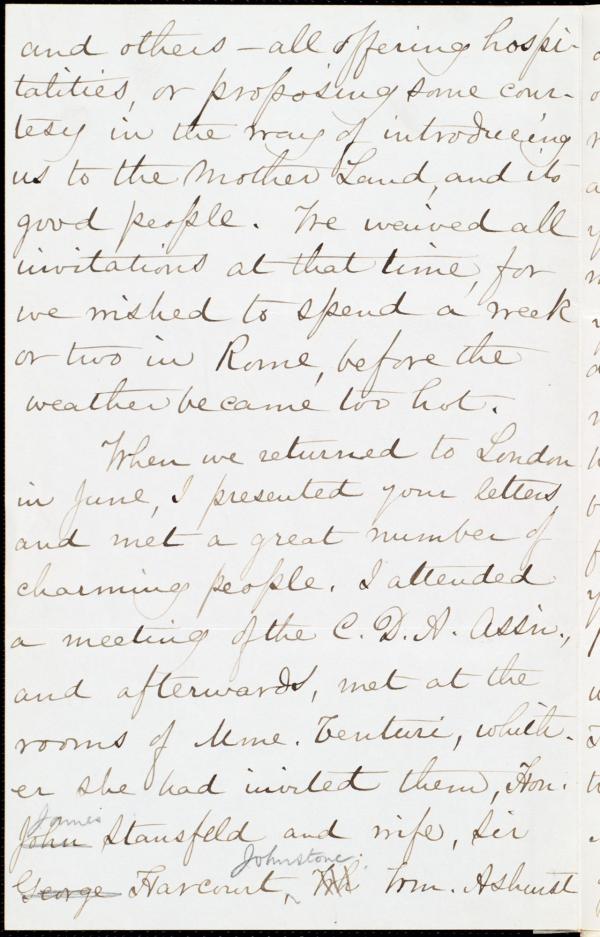 and others – all offering hospi-
talities, or proposing some cour-
tesy in the way of introducing
us to the Mother Land, and its
good people. We waived all
invitations at that time, for
we wished to spend a week
or two in Rome, before the
weather became too hot.
When we returned to London
in June, I presented your letters,
and met a great number of
charming people. I attended
a meeting of the C. D. A. Assn.,
and afterwards, met at the
rooms of Mme. Venturi, whith-
er she had invited them, Hon.
James
John Stansfeld and wife, Sir
Johnstone;
George Harcourt, Wm. Ashurst